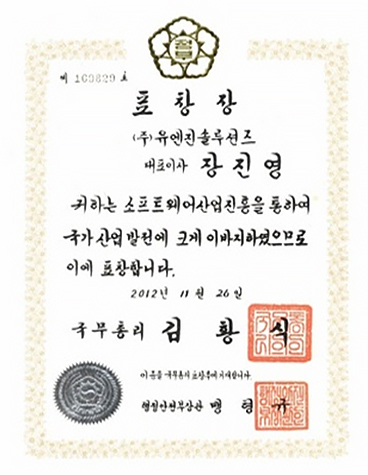 제 160829 호
표 창 장
(주) 유엔진솔루션즈
대표이사 장진영
귀하는 소프트웨어산업진흥을 통하여
국가 산업 발전에 크게 이바지하였으므로
이에 표창합니다.
2012년 11월 26일
국무총리 김 황 식
이 증을 국무총리 표창부에 기재합니다.
행정안전부장관 맹 형 규